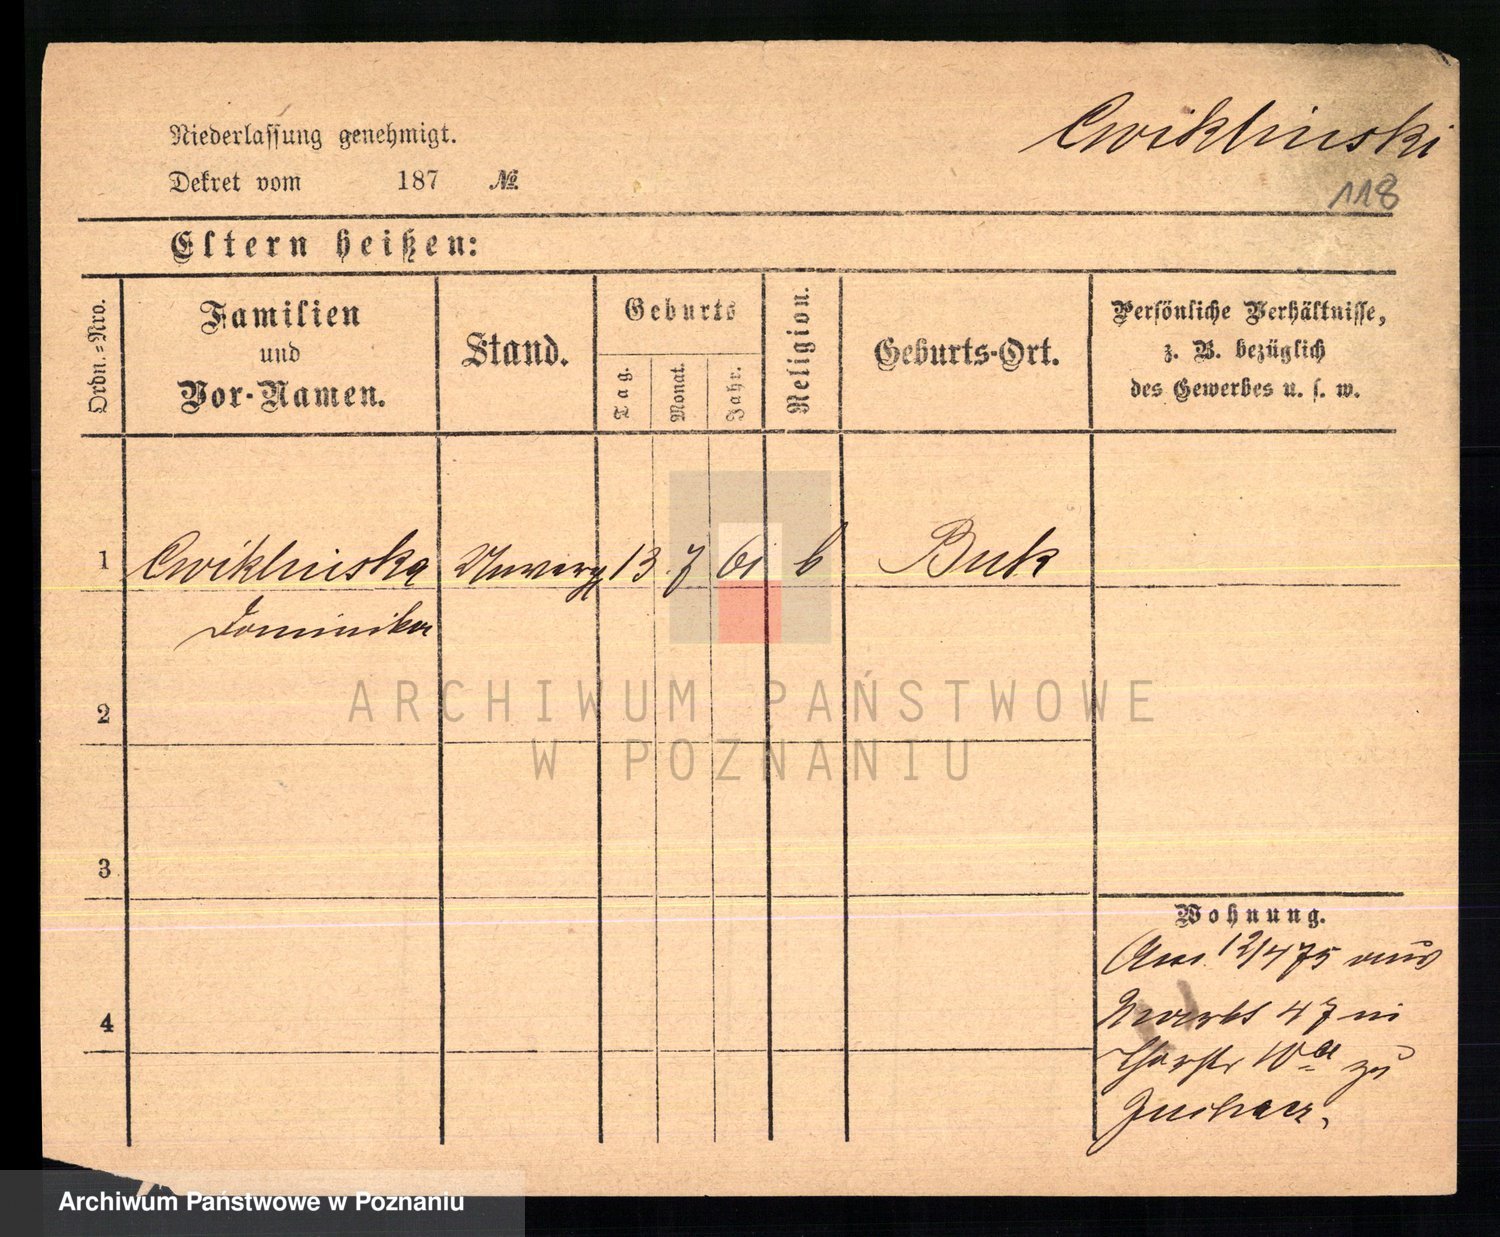 Cwiklinski
Niederlassung genehmigt.
118
Dekret vom 187 №
Eltern heißen:
Ordn.-Nro.
Familien und Vor-Namen.
Stand.
Geburts
Tag.
Monat.
Jahr.
Religion.
Geburts-Ort.
Persönliche Verhältnisse,
z. B. bezüglich
des Gewerbes u. s. w.
1 Cwiklinska Unverg 13 7 61 k Buk
Dominika
2
3
4
Wohnung.
12/4 75 aus
47 in
10a zu
ARCHIWUM PAŃSTWOWE
W POZNANIU
Archiwum Państwowe w Poznaniu